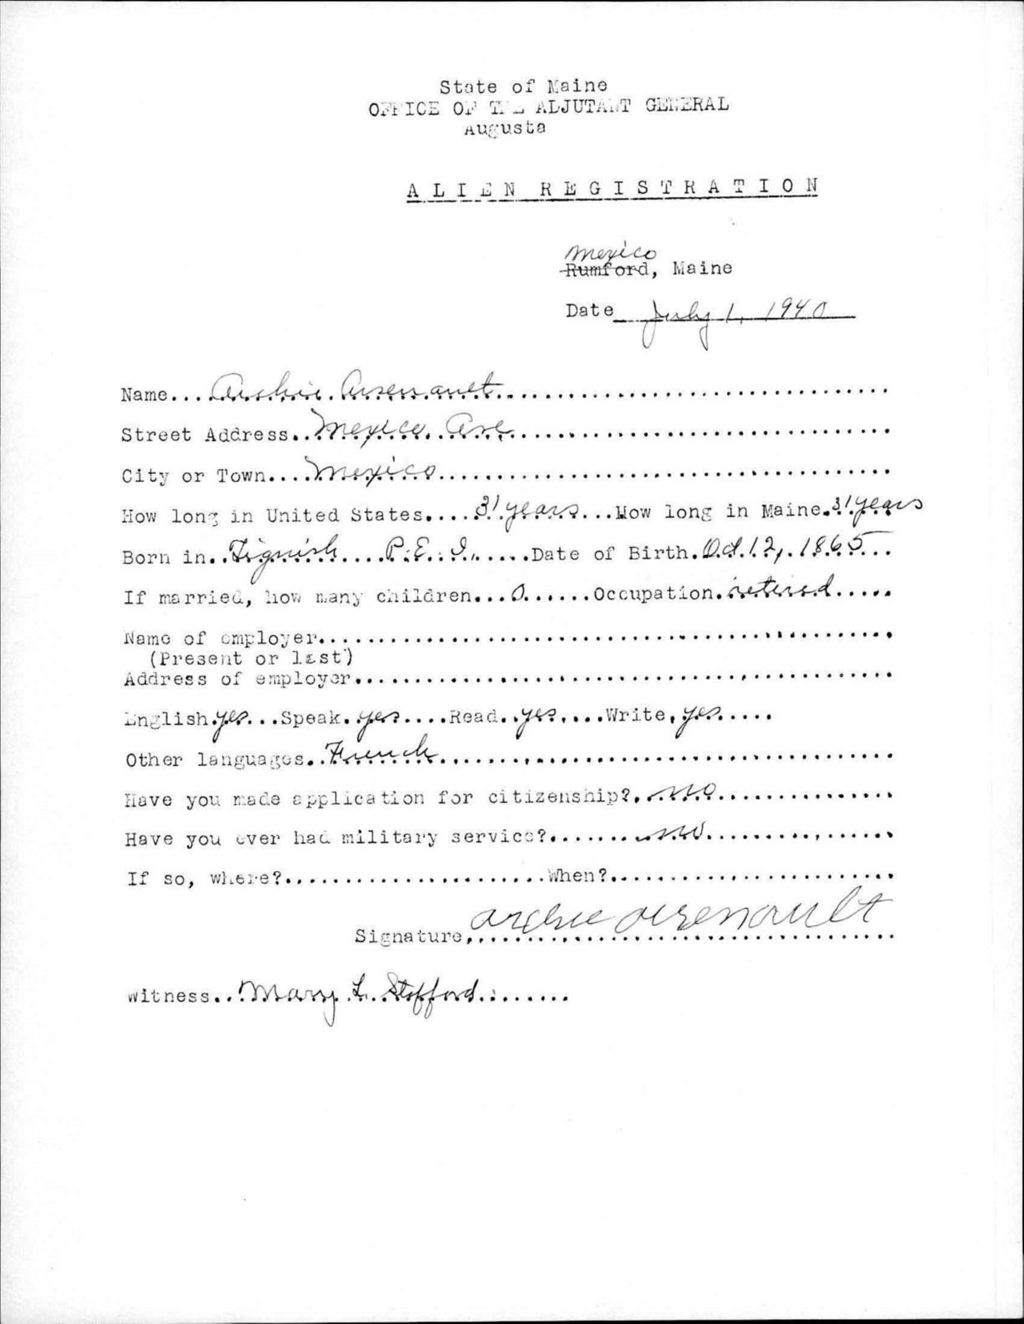 State of Maine
OFFICE OF THE ADJUTANT GENERAL
Augusta
ALIEN REGISTRATION
Mexico
Rumford, Maine
Date July 1, 1940
Name... Archie Arsenault
Street Address.. Mexico Ave
City or Town.... Mexico
How long in United States.... 31 years ...How long in Maine. 31 years
Born in.. Tignish P.E.I. .....Date of Birth. Oct. 12, 1865...
If married, how many children...0......Occupation. retired.....
Name of employer
(Present or last)
Address of employer
English yes...Speak. yes....Read.. yes....Write, yes.....
Other languages.. French
Have you made application for citizenship? no
Have you ever had military service? no
If so, where? When?
Signature Archie Arsenault
witness.. Mary L. Stofford